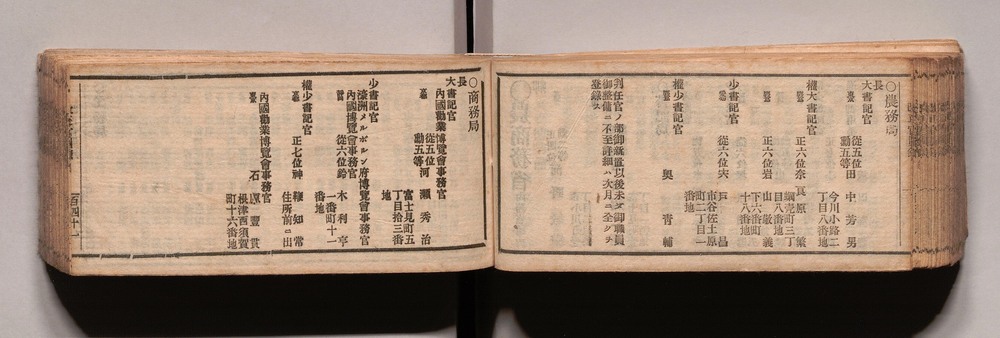 〇農務局
長
大書記官
從五位
勳五等
田中芳男
今川小路二
丁目八番地
權大書記官
正六位奈良原繁
網壱町三丁
目八番地
正六位岩山敬義
下六番町
十八番地
少書記官
從六位宍戸昌
市谷佐土原
町二丁目一
番地
權少書記官
奥青輔
判任官ノ部御新置以後未タ御職員
御整備ニ不至詳細ハ次月ニ全グチ
登録ス
〇商務局
長
大書記官
內國勸業博覽會事務官
從五位
勳五等
河瀨秀治
富士見町五
丁目拾三番
地
少書記官
濠洲メルボルン府博覽會事務官
內國博覽會事務官
從六位鈴木利亨
一番町十一
番地
權少書記官
正七位神鞭知常
住所前ニ出
內國勸業博覽會事務官
石原豊貫
根津西須賀
町十六番地
百四十一